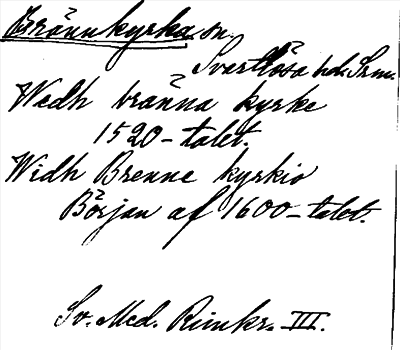 Brännkyrka sn.
Svartlösa hd. Srm.
Wedh bränna kyrke
1520-talet.
Widh Brenne kyrkio
Början af 1600-talet.
Sv. Med. Rimkr. III.